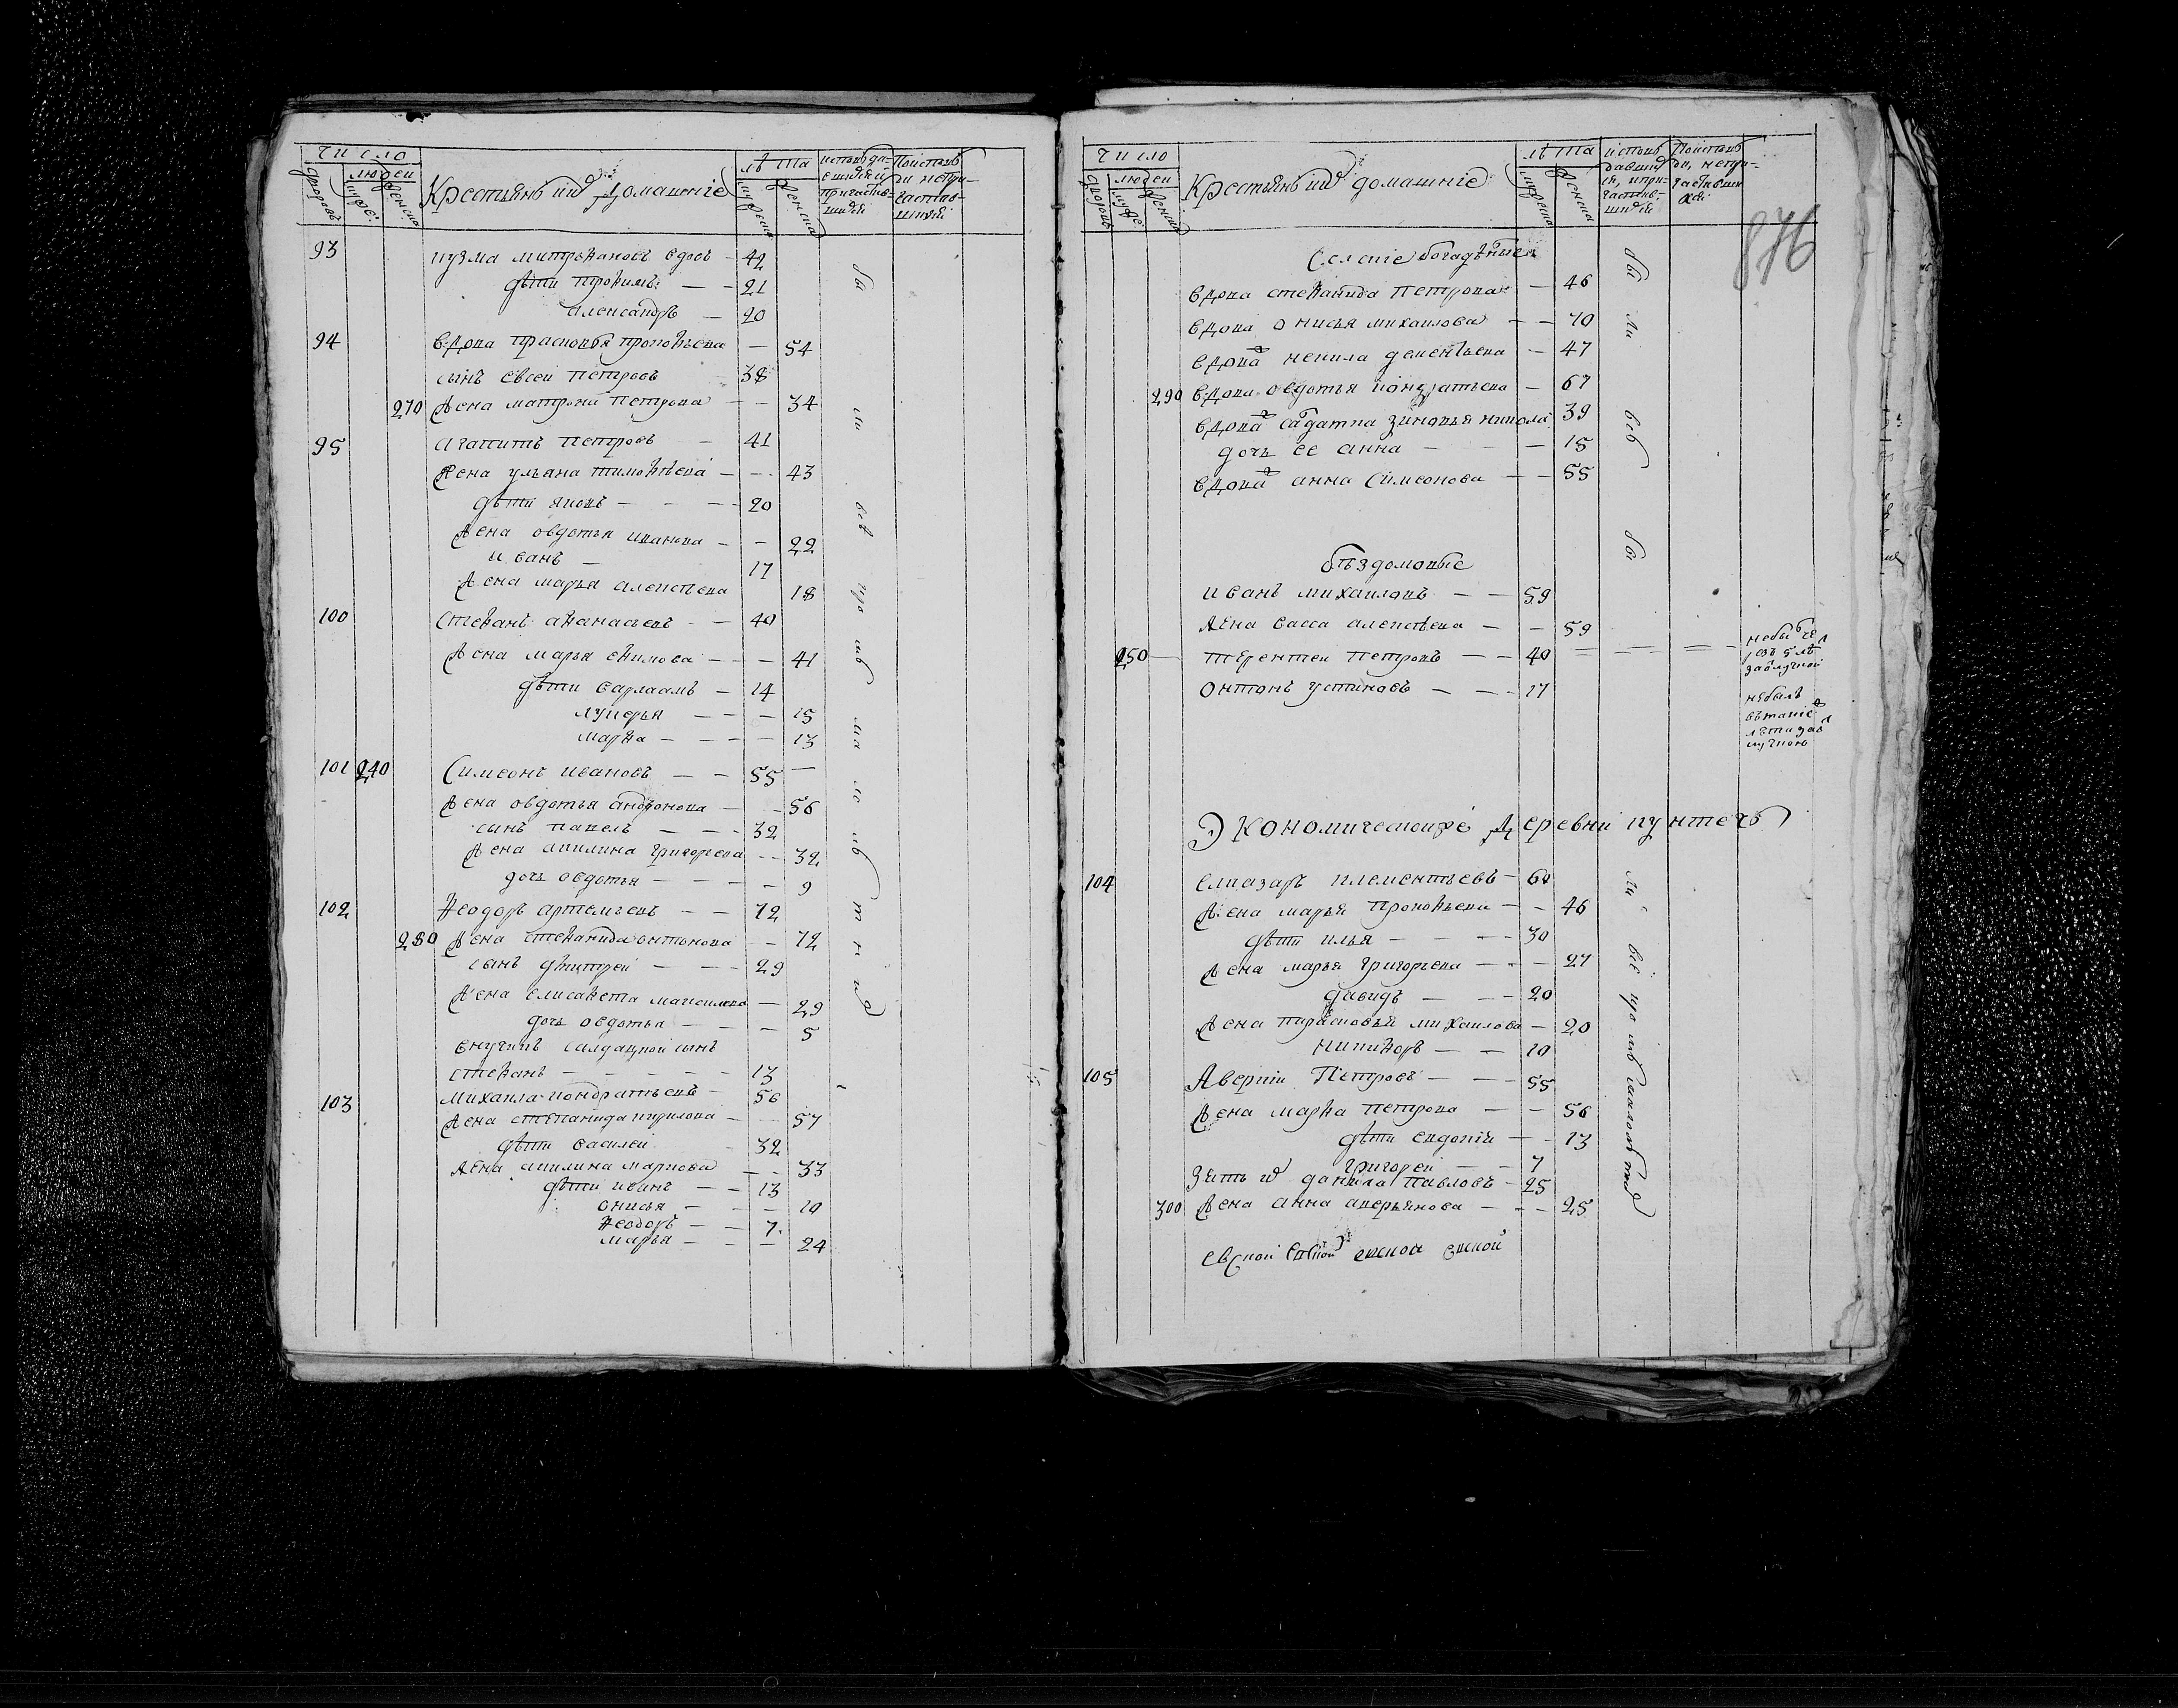 Число
людеи
дворовъ
мужес:
женска
Крестьянѣ ихъ домашніе
лѣта
мужеска
женска
исповѣда-
вшихся и
причастив-
шихся
По исповѣ
ди непри-
частив-
шихся
93 кузма митрѳановъ вдовъ - 42
дѣти троѳимъ - - 21
александръ - 20
94 вдова прасковья прокоѳьева - 54
сынъ евсеи петровъ 38
270 жена матрона петрова - - 34
95 агапитъ петровъ - 41
жена ульяна тимоѳѣева - - 43
дѣти яковъ - - - 20
жена овдотья иванова - - 22
иванъ - 17
жена марья алексѣева 18
100 стеѳанъ аѳанасьевъ - - 40
жена марья еѳимова - - - 41
дѣти варлаамъ - 14
лукерья - - - 15
марѳа - - - - 13
101 240 Симеонъ ивановъ - - 55 -
жена овдотья андронова - - 56
сынъ павелъ - - - 32
жена акилина григорьева - - 32
дочь овдотья - - - - 9
102 ѳеодоръ артемьевъ - - 72
280 жена стеѳанида антонова - 72
сынъ дмитреи - - - 29
жена елисавета максимова - 29
дочь овдотья - - - 5
внучикъ салдацкой сынъ
стеѳанъ - - - - - 13
103 михаила кондратьевъ - 56
жена степанида кирилова - 57
дѣти василеи 32
жена акилина маркова - - 33
дѣти иванъ - - 13
онисья - - - 10
ѳеодоръ - - 7.
марья - - - 24
были всѣ кромѣ малолѣтнихъ
Число
людеи
дворовъ
мужес:
женска
Крестьянѣ ихъ домашніе
лѣта
мужеска
женска
исповѣ
давших
ся, и при-
частив-
шихся
По исповѣ
ди, непри-
частивши
хся
876
Селскіе богадѣлные
вдова стеѳанида петрова - 46
вдова онисья михаилова - - 70
вдова ненила дементьева - 47
290 вдова овдотья кондратьева - 67
вдова садатка зиновья никола: 39
дочь ее анна - - - 15
вдова анна Симеонова - - 55
бѣздомовые
иванъ михаиловъ - - 59
жена васса алексѣева - - 59
250 - терентеи петровъ - - 40 = = = -
небы
5 лѣ
за отлучкой
онтонъ устиновъ - - - 17
небылъ
за от
лучкою
Экономическоиже Деревни кунтечь
104 елиазаръ клементьевъ - 60
жена марья прокоѳьева - - 46
дѣти илья - - - - 30
жена марья григорьева - - - 27
давидъ - - - 20
жена парасковья михаилова - 20
никиѳоръ - - 10
105 Аверкіи Петровъ - - - 55
жена марѳа петрова - - 56
дѣти евдокія - - 13
Григореи - - 7
зять ихъ данила павловъ - 25
300 жена анна аверьянова - - - 25
были всѣ были всѣ кромѣ малолѣтнихъ
евской